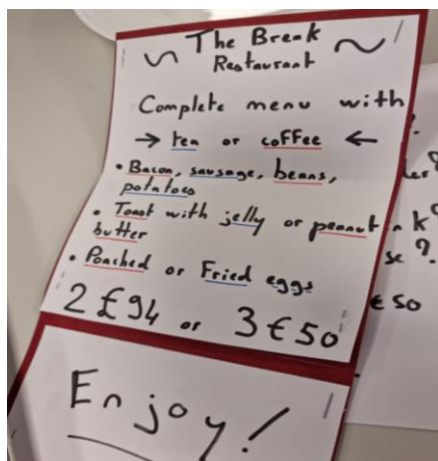 The Break
Restaurant
Complete menu with
→ tea or coffee ←
• Bacon, sausage, beans,
potatoes
• Toast with jelly or peanut
butter
• Poached or Fried eggs
2 £ 94 or 3 € 50
Enjoy!
€ 50